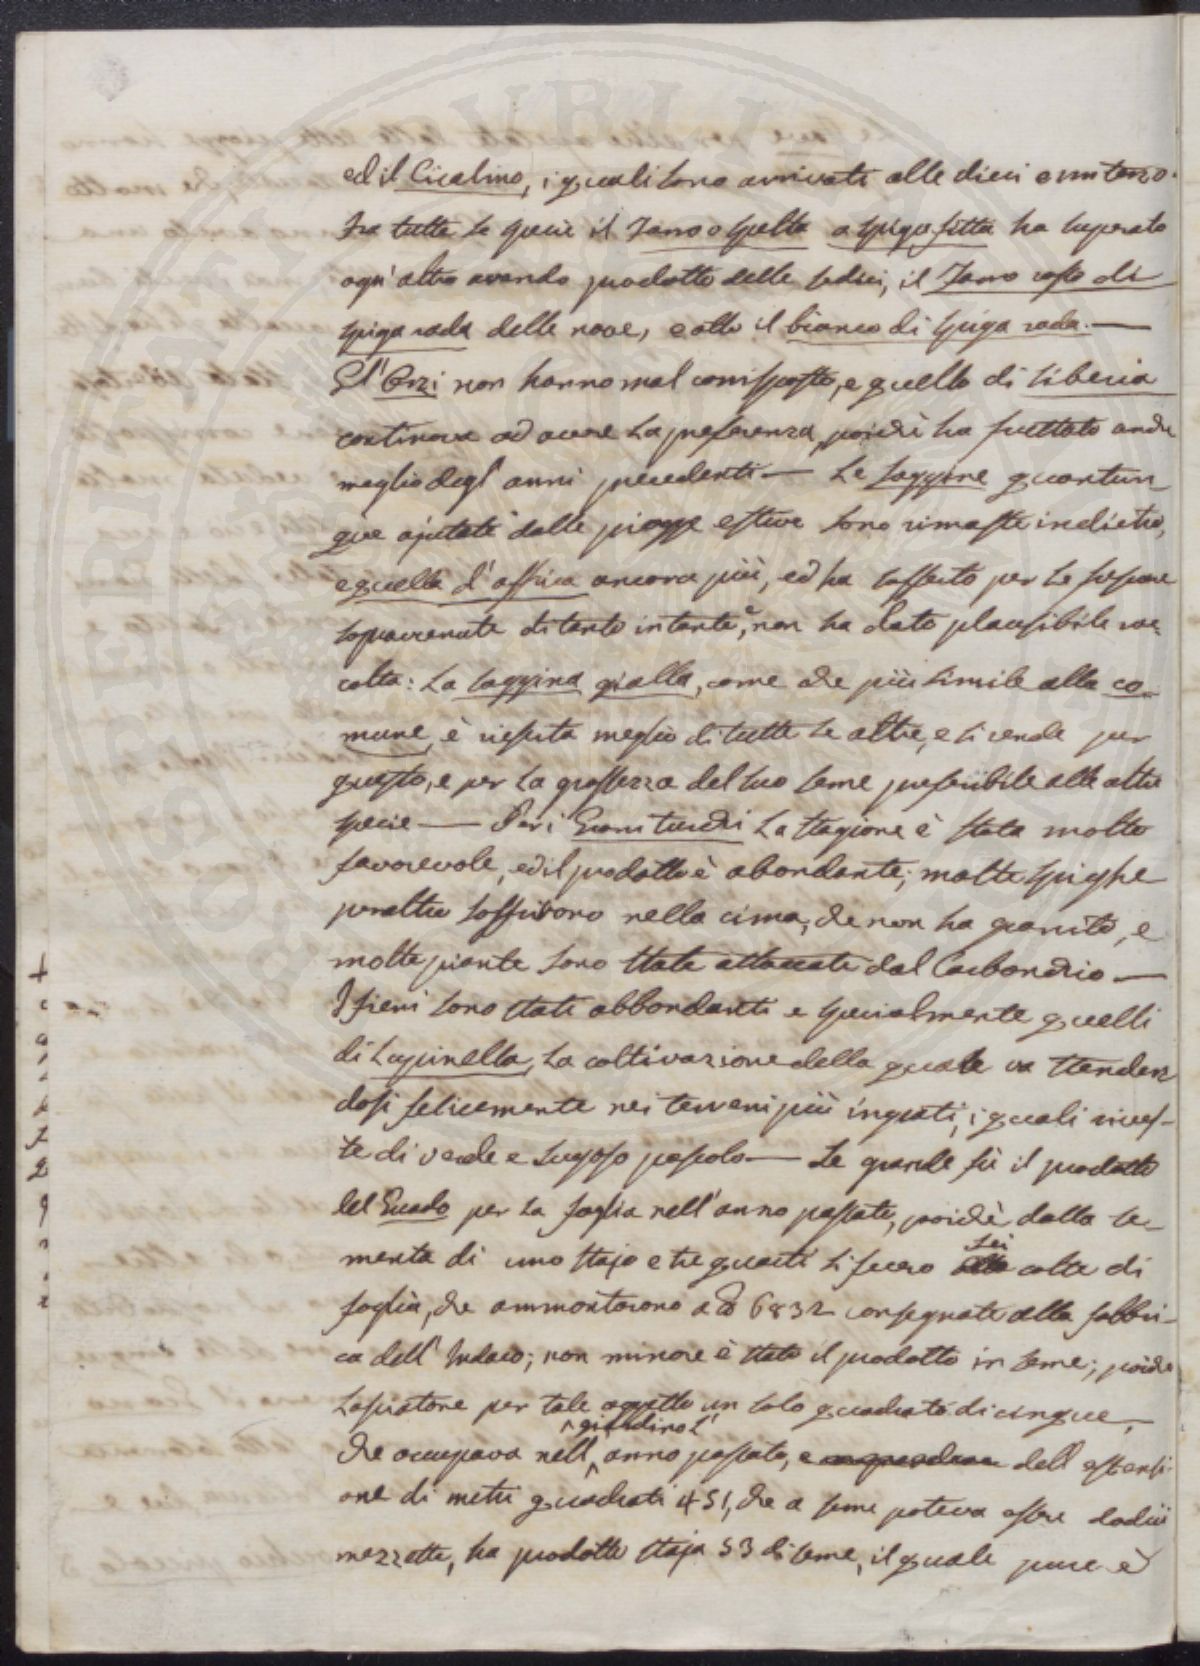 ed il Cicalino, i quali sono arrivati alle dieci e un terzo.
Fra tutte le specie il Farro o Spelta a spiga fitta ha superato
ogn' altro avendo prodotto delle sedici, il Farro rosso di
spiga rada delle nove, e otto il bianco di spiga rada.—
Gl' Orzi non hanno mal corrisposto, e quello di Siberia
continova ad avere la preferenza, poichè ha fruttato anche
meglio degl' anni precedenti — Le Saggine quantun-
que ajutate dalle piogge estive sono rimaste indietro,
e quella d' Affrica ancora più, ed ha sofferto per le
sopravvenute di tanto in tanto, e non ha dato plausibile rac-
colta: La saggina gialla, come che più simile alla co-
mune, è riescita meglio di tutte le altre, e si rende per
questo, e per la grossezza del suo seme preferibile alle altre
specie — Per i Grani turchi la stagione è stata molto
favorevole, ed il prodotto è abondante; molte spighe
peraltro soffrirono nella cima, che non ha granito, e
molte piante sono state attaccate dal Carbonchio —
I fieni sono stati abbondanti e specialmente quelli
di Lupinella, la coltivazione della quale va stenden
dosi felicemente nei terreni più ingrati, i quali rives-
te di verde e sugoso pascolo — Se grande fù il prodotto
del Guado per la foglia nell' anno passato, poichè dalla se-
menta di uno stajo e tre quarti si fecero sei colte di
foglia, che ammontarono a 6832 consegnate alla fabbri-
ca dell' Indaco; non minore è stato il prodotto in seme; poichè
lasciatone per tale oggetto un solo quadrato di cinque,
che occupava nell' giardino l' anno passato, e dell' estensi-
one di metri quadrati 451, che a seme poteva essere dodici
mezzette, ha prodotto staja 53 di seme, il quale pure è